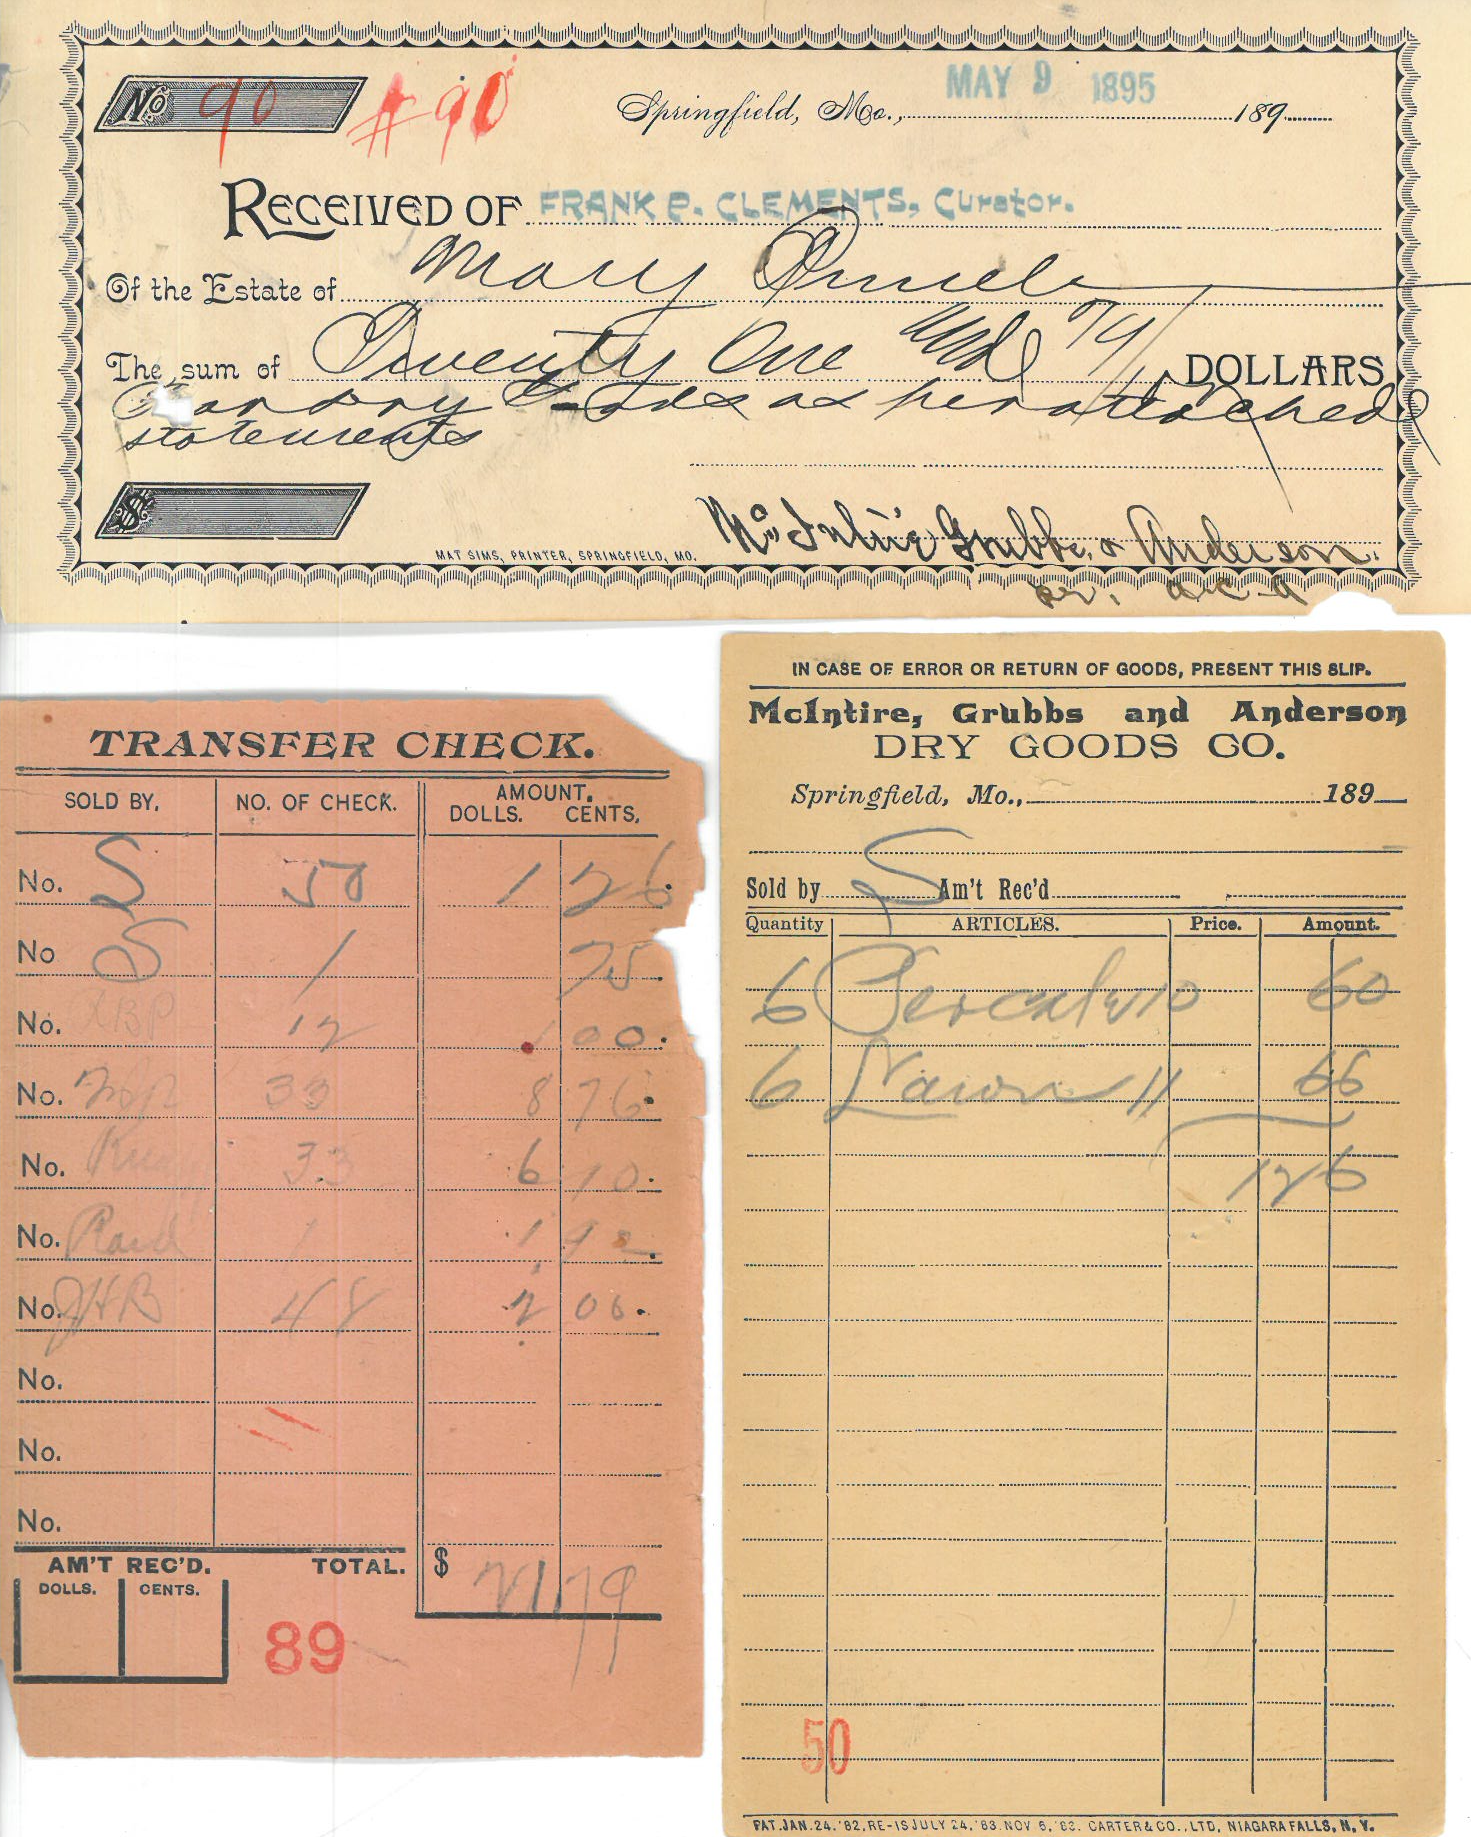 No 90 #90
Springfield, Mo., MAY 9 1895 189
RECEIVED OF FRANK P. CLEMENTS, Curator.
Of the Estate of Mary
The sum of Twenty One and 79/ DOLLARS
Goods as per attached
statements
$
McIntire Grubbs & Anderson.
MAT SIMS, PRINTER, SPRINGFIELD, MO.
per.
TRANSFER CHECK.
SOLD BY. NO. OF CHECK. AMOUNT.
DOLLS. CENTS.
No. S 50 1 26
No S 1 75
No. 12 1 00
No. 33 8 76
No. 33 6 10
No. 1 1 92
No. JHB 48 2 00
No.
No.
No.
AM'T REC'D. TOTAL. $ 21 79
DOLLS. CENTS.
89
IN CASE OF ERROR OR RETURN OF GOODS, PRESENT THIS SLIP.
McIntire, Grubbs and Anderson
DRY GOODS CO.
Springfield, Mo., 189
Sold by S Am't Rec'd
Quantity ARTICLES. Price. Amount.
6 Percale 10 60
6 Lawn 11 66
1 26
50
PAT. JAN. 24, '82, RE-IS JULY 24, '83. NOV 6, '83. CARTER & CO., LTD, NIAGARA FALLS, N. Y.